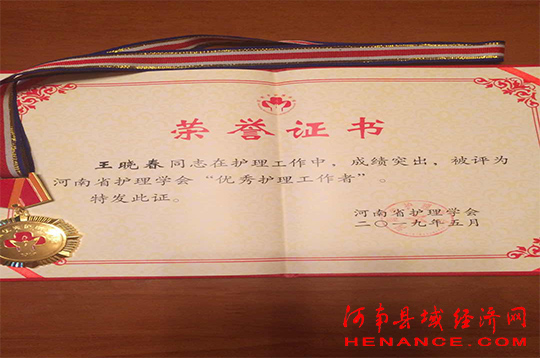 荣誉证书
王晓春同志在护理工作中，成绩突出，被评为
河南省护理学会“优秀护理工作者”。
特发此证。
河南省护理学会
二〇一九年五月
河南县域经济网
HENANCE.COM